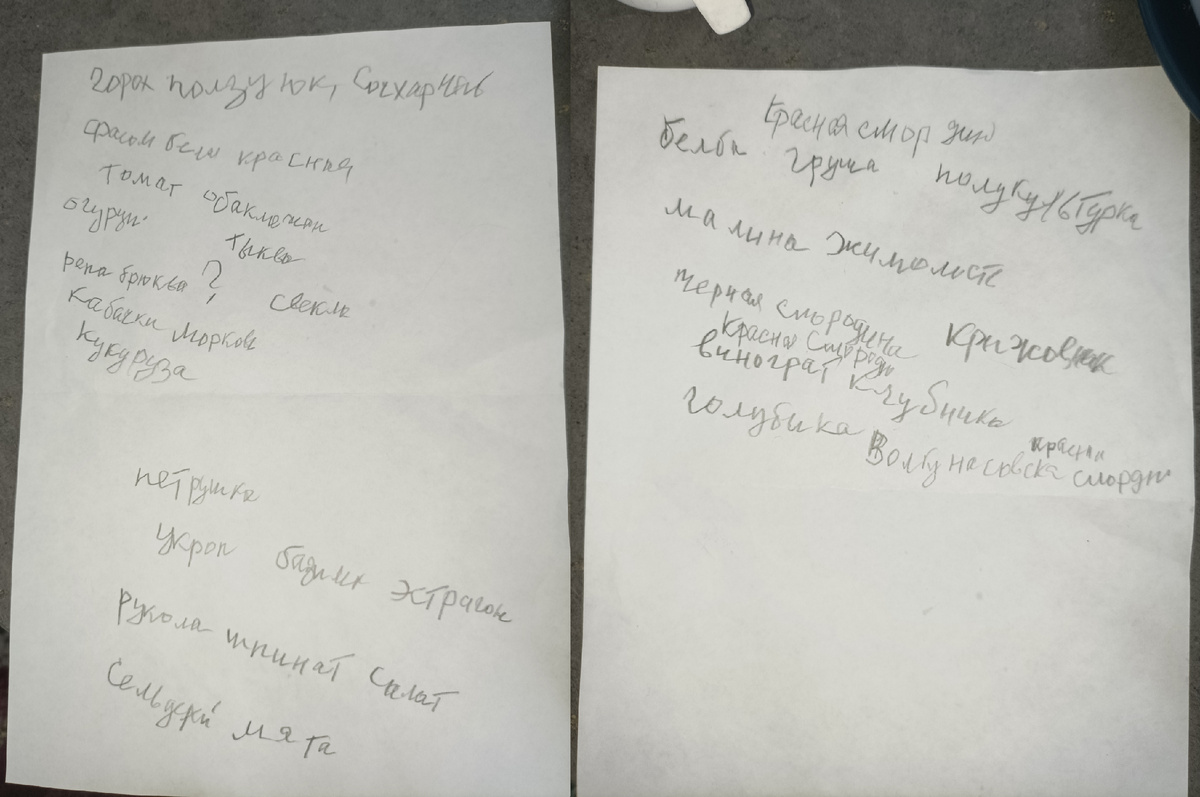 горох ползуюк, Согхарный
фасом бела красная
томат обакложан
огуруц тыква
репа брюква ? свекла
Кабачки морковь
Кукуруза
петрушка
Укроп бадилик эстрагон
рукола шпинат салат
Сельдерй мята
Красная смородин
белба груша полукультурка
малина жимолость
черная смородина крижовник
красная смороди
виноград клубника
голубика красная
смордин